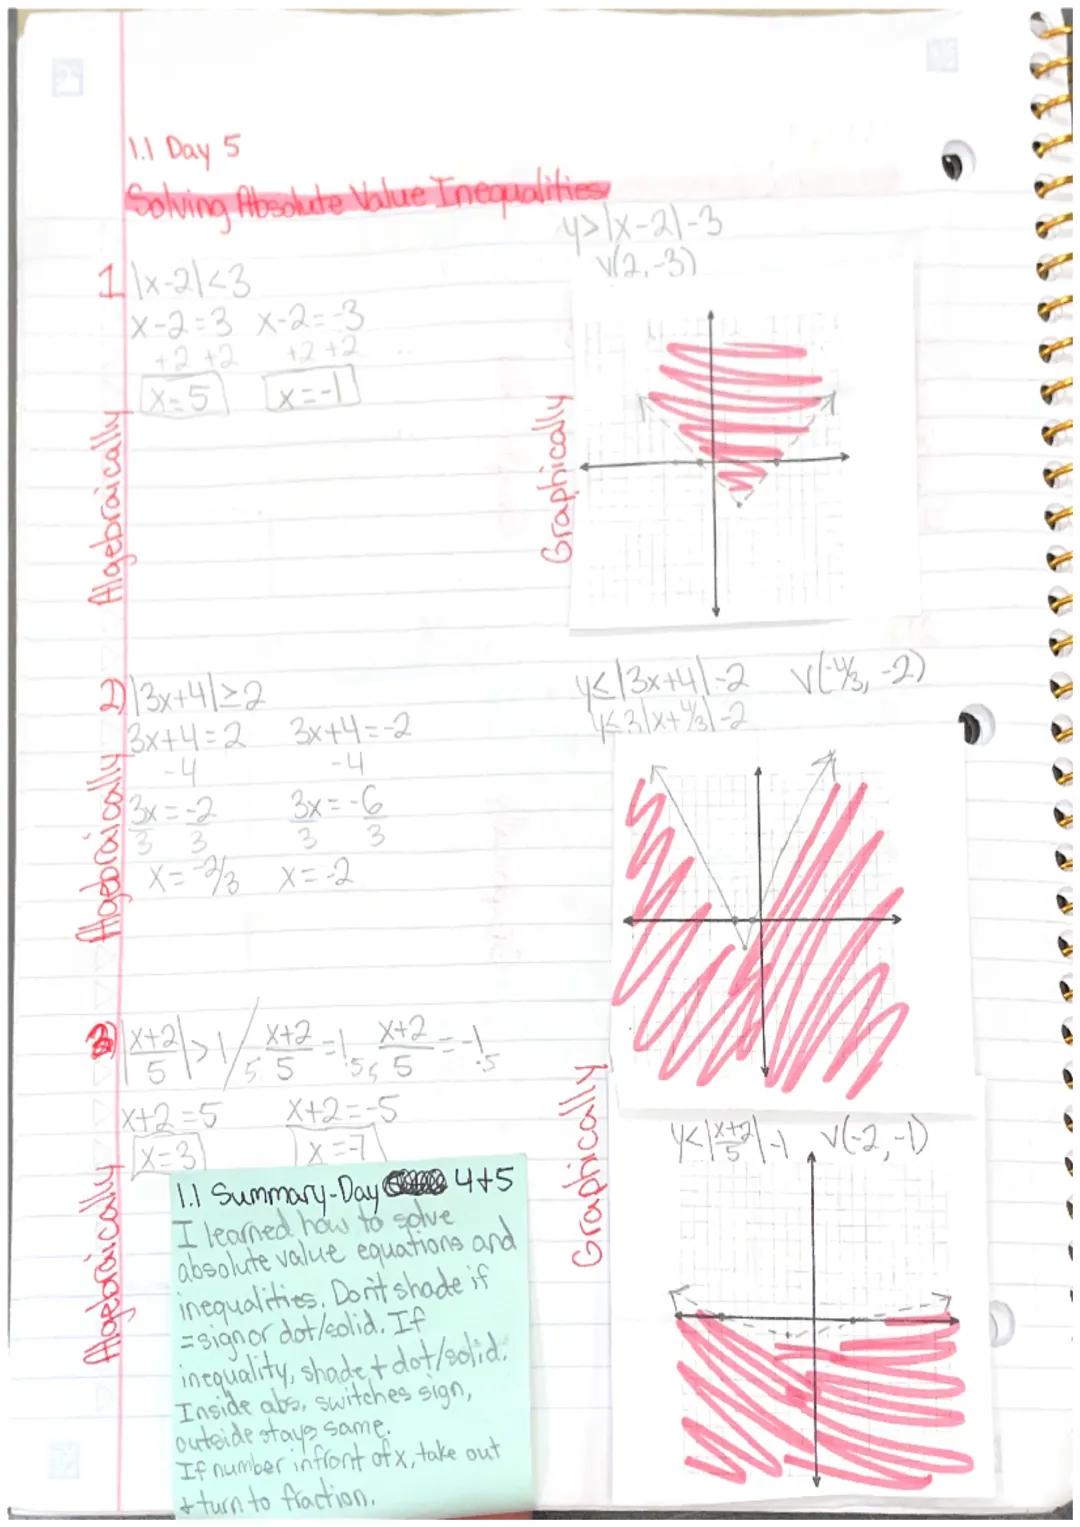 1.1 Day 5
Solving Absolute Value Inequalities
1 |x-2|<3
x-2=3 x-2=-3
+2 +2 +2 +2
x=5 x=-1
Algebraically
y>|x-2|-3
V(2,-3)
Graphically
2) |3x+4|≥2
3x+4=2 3x+4=-2
-4 -4
3x=-2 3x=-6
3 3 3 3
x=-2/3 x=-2
Algebraically
y≤|3x+4|-2 V(-4/3, -2)
y≤3|x+4/3|-2
3 |x+2/5|>1 / 5· x+2/5=1·5 5· x+2/5=-1·5
x+2=5 x+2=-5
x=3 x=-7
Algebraically
Graphically
y<|x+2/5|-1 V(-2,-1)
1.1 Summary-Day 4+5
I learned how to solve
absolute value equations and
inequalities. Don't shade if
=sign or dot/solid. If
inequality, shade + dot/solid.
Inside abs. switches sign,
outside stays same.
If number infront of x, take out
+ turn to fraction.